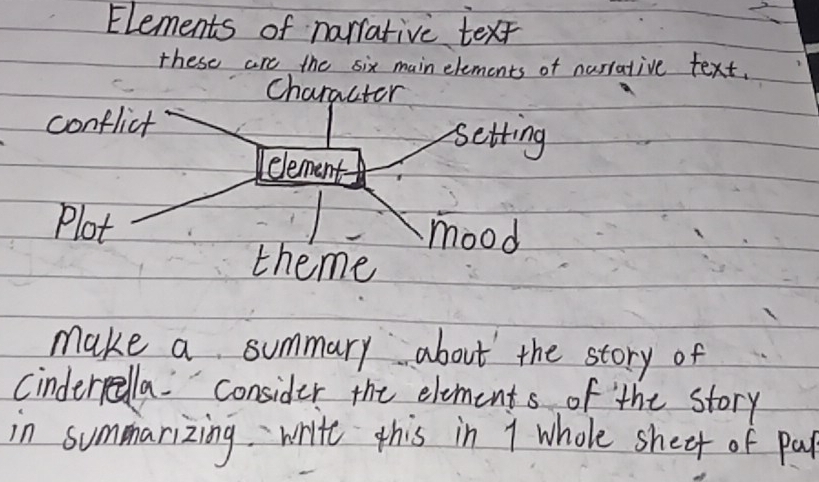 Elements of narrative text
these are the six main elements of narrative text.
Character
conflict
setting
element
Plot
mood
theme
make a summary about the story of
Cinderrella. Consider the elements of the story
in summarizing. write this in 1 whole sheet of pap